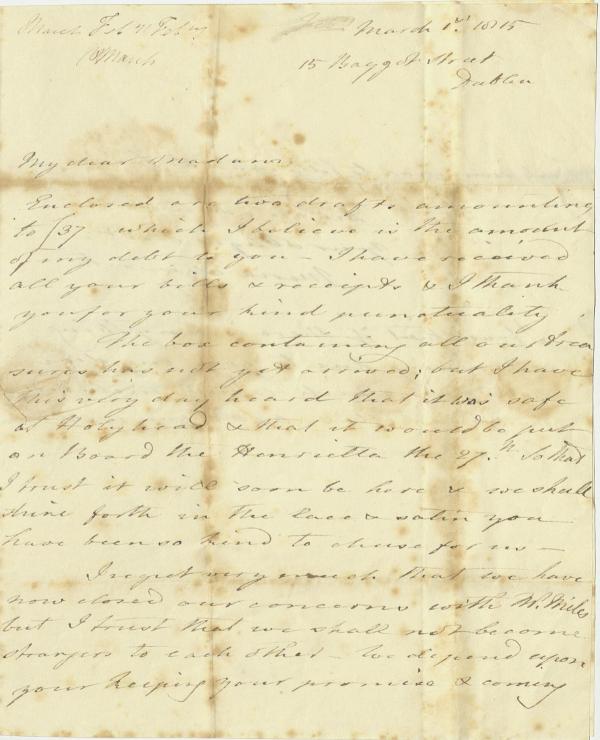 March 1st 1815
15 Baggot Street
Dublin
March
My dear Madam
Enclosed are two drafts amounting
to £37 which I believe is the amount
of my debt to you - I have received
all your bills & receipts & I thank
you for your kind punctuality
The box containing all our trea
sures has not yet arrived; but I have
this very day heard that it was safe
at Holyhead & that it would be put
on Board the Henrietta the 27th So that
I trust it will soon be here & we shall
shine forth in the lace & satin you
have been so kind to chuse for us -
I regret very much that we have
now closed our concerns with Mr. Miles
but I trust that we shall not become
strangers to each other - We depend upon
your keeping your promise & coming